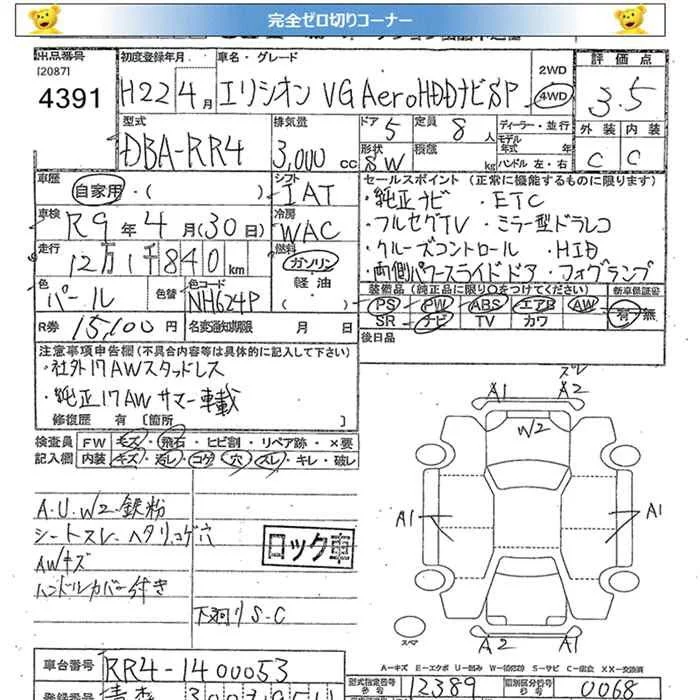 完全ゼロ切りコーナー
出品番号
[2087]
4391
初度登録年月
H22 4月
車名・グレード
エリシオン VG AeroHDDナビSP
2WD
4WD
評価点
3.5
外装 内装
C C
型式
DBA-RR4
排気量
3,000 cc
ドア 5
形状 SW
定員 8人
積載 kg
ディーラー・並行
モデル年式 年
ハンドル 左・右
車歴
自家用・( )
シフト
IAT
セールスポイント (正常に機能するものに限ります)
・純正ナビ ・ETC
・フルセグTV ・ミラー型ドラレコ
・クルーズコントロール ・HID
・両側パワースライドドア ・フォグランプ
車検
R9年 4月(30日)
冷房
WAC
走行
12万1千840km
燃料
ガソリン
軽油
( )
色
パール
色替
色コード
NH624P
装備品 (純正品に限り○をつけてください)
PS PW ABS エアB AW
SR ナビ TV カワ
新車保証書
有・無
R券 15,100円
名変通知期限 月 日
後日品
注意事項申告欄 (不具合内容等は具体的に記入して下さい)
・社外17AWスタッドレス
・純正17AWサマー車載
修復歴 有 〔箇所 〕
検査員記入欄
FW キズ・飛石・ヒビ割・リペア跡・×要
内装 キズ・汚レ・コゲ・穴・スレ・キレ・破レ
A.U.W2.鉄粉
シートスレ ヘタリ.コゲ穴
AWキズ
ハンドルカバー付き
ロック車
下廻りS.C
スレ
A1 A2
W2
A1 A1
A2 A1
スペア
A－キズ E－エクボ U－凹み W－補修跡 S－サビ C－腐食 XX－交換済
車台番号
RR4-1400053
型式指定番号
12389
類別区分番号
0068
登録番号